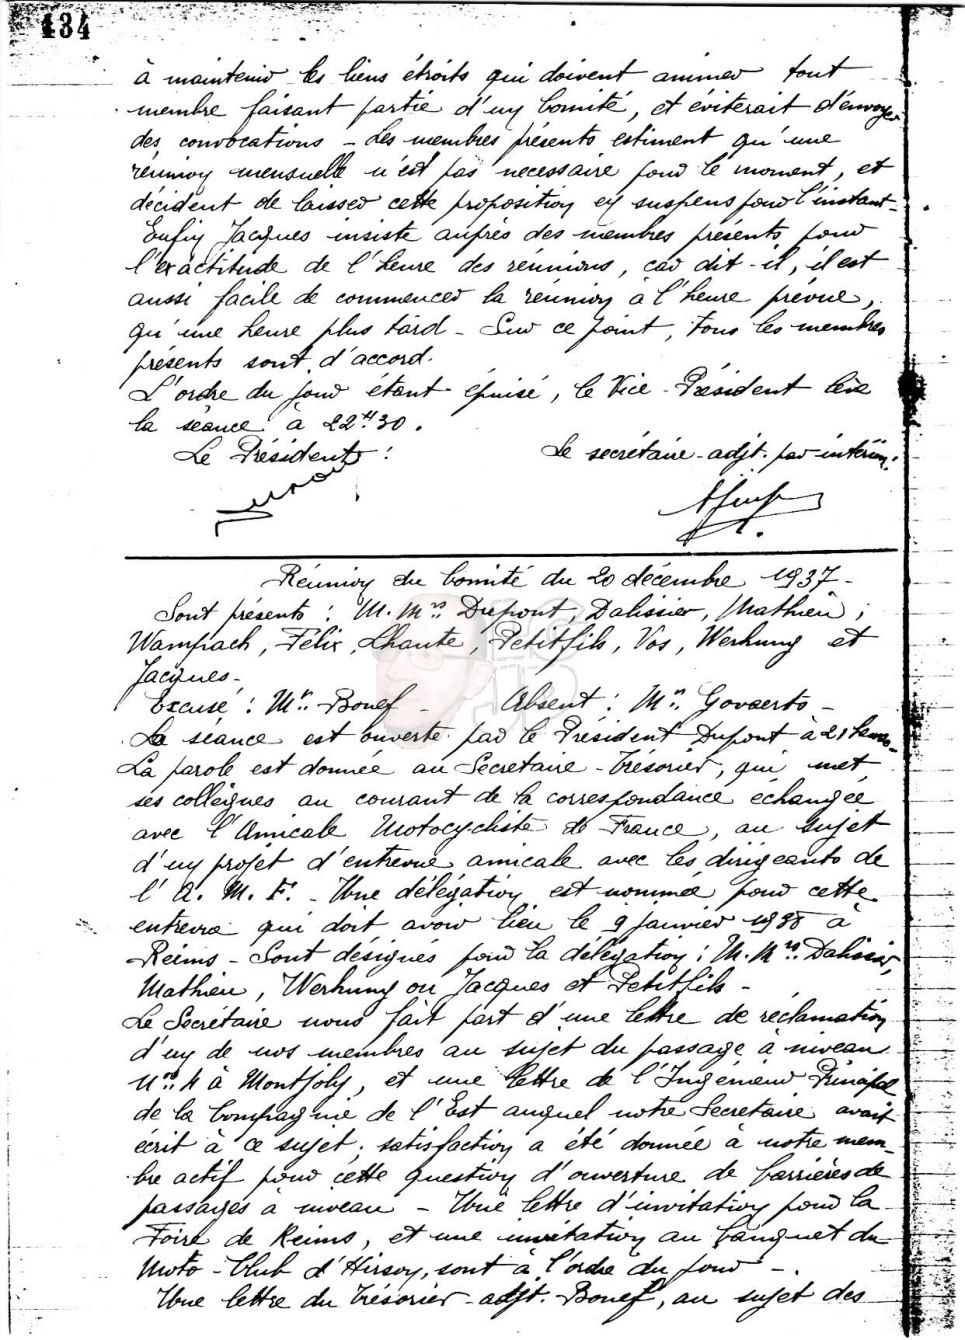 434
à maintenir les liens étroits qui doivent animer tout
membre faisant partie d'un Comité, et éviterait d'envoyer
des convocations - Les membres présents estiment qu'une
réunion mensuelle n'est pas necessaire pour le moment, et
décident de laisser cette proposition en suspens pour l'instant -
Enfin Jacques insiste auprès des membres présents pour
l'exactitude de l'heure des réunions, car dit-il, il est
aussi facile de commencer la réunion à l'heure prévue,
qu'une heure plus tard - Sur ce point, tous les membres
présents sont d'accord.
L'ordre du jour étant épuisé, le Vice-Président lève
la séance à 22H30.
Le Président : Le secrétaire-adjt. par intérim :
Réunion du Comité du 20 décembre 1937 -
Sont présents : M.Mrs Dupont, Dalissier, Mathieu ;
Wampach, Félix, Lhante, Petitfils, Vos, Werhung et
Jacques -
Excusé : Mr. Bonef - Absent : Mr. Govaerts -
La séance est ouverte par le Président Dupont à 21 heures -
La parole est donnée au Secretaire-Trésorier, qui met
ses collègues au courant de la correspondance échangée
avec l'Amicale Motocycliste de France, au sujet
d'un projet d'entrevue amicale avec les dirigeants de
l'A. M. F. - Une délégation est nommée pour cette
entrevue qui doit avoir lieu le 9 janvier 1938 à
Reims - Sont désignés pour la délégation : M.Mrs. Dalissier,
Mathieu, Werhung ou Jacques et Petitfils -
Le Secrétaire nous fait part d'une lettre de réclamation
d'un de nos membres au sujet du passage à niveau
No. 4 à Montjoly, et une lettre de l'Ingénieur Principal
de la Compagnie de l'Est auquel notre Secretaire avait
écrit à ce sujet, satisfaction a été donnée à notre mem-
bre actif pour cette question d'ouverture de barrières de
passages à niveau - Une lettre d'invitation pour la
Foire de Reims, et une invitation au banquet du
Moto-Club d'Hirson, sont à l'ordre du jour -.
Une lettre du Trésorier-adjt. Bonef, au sujet des